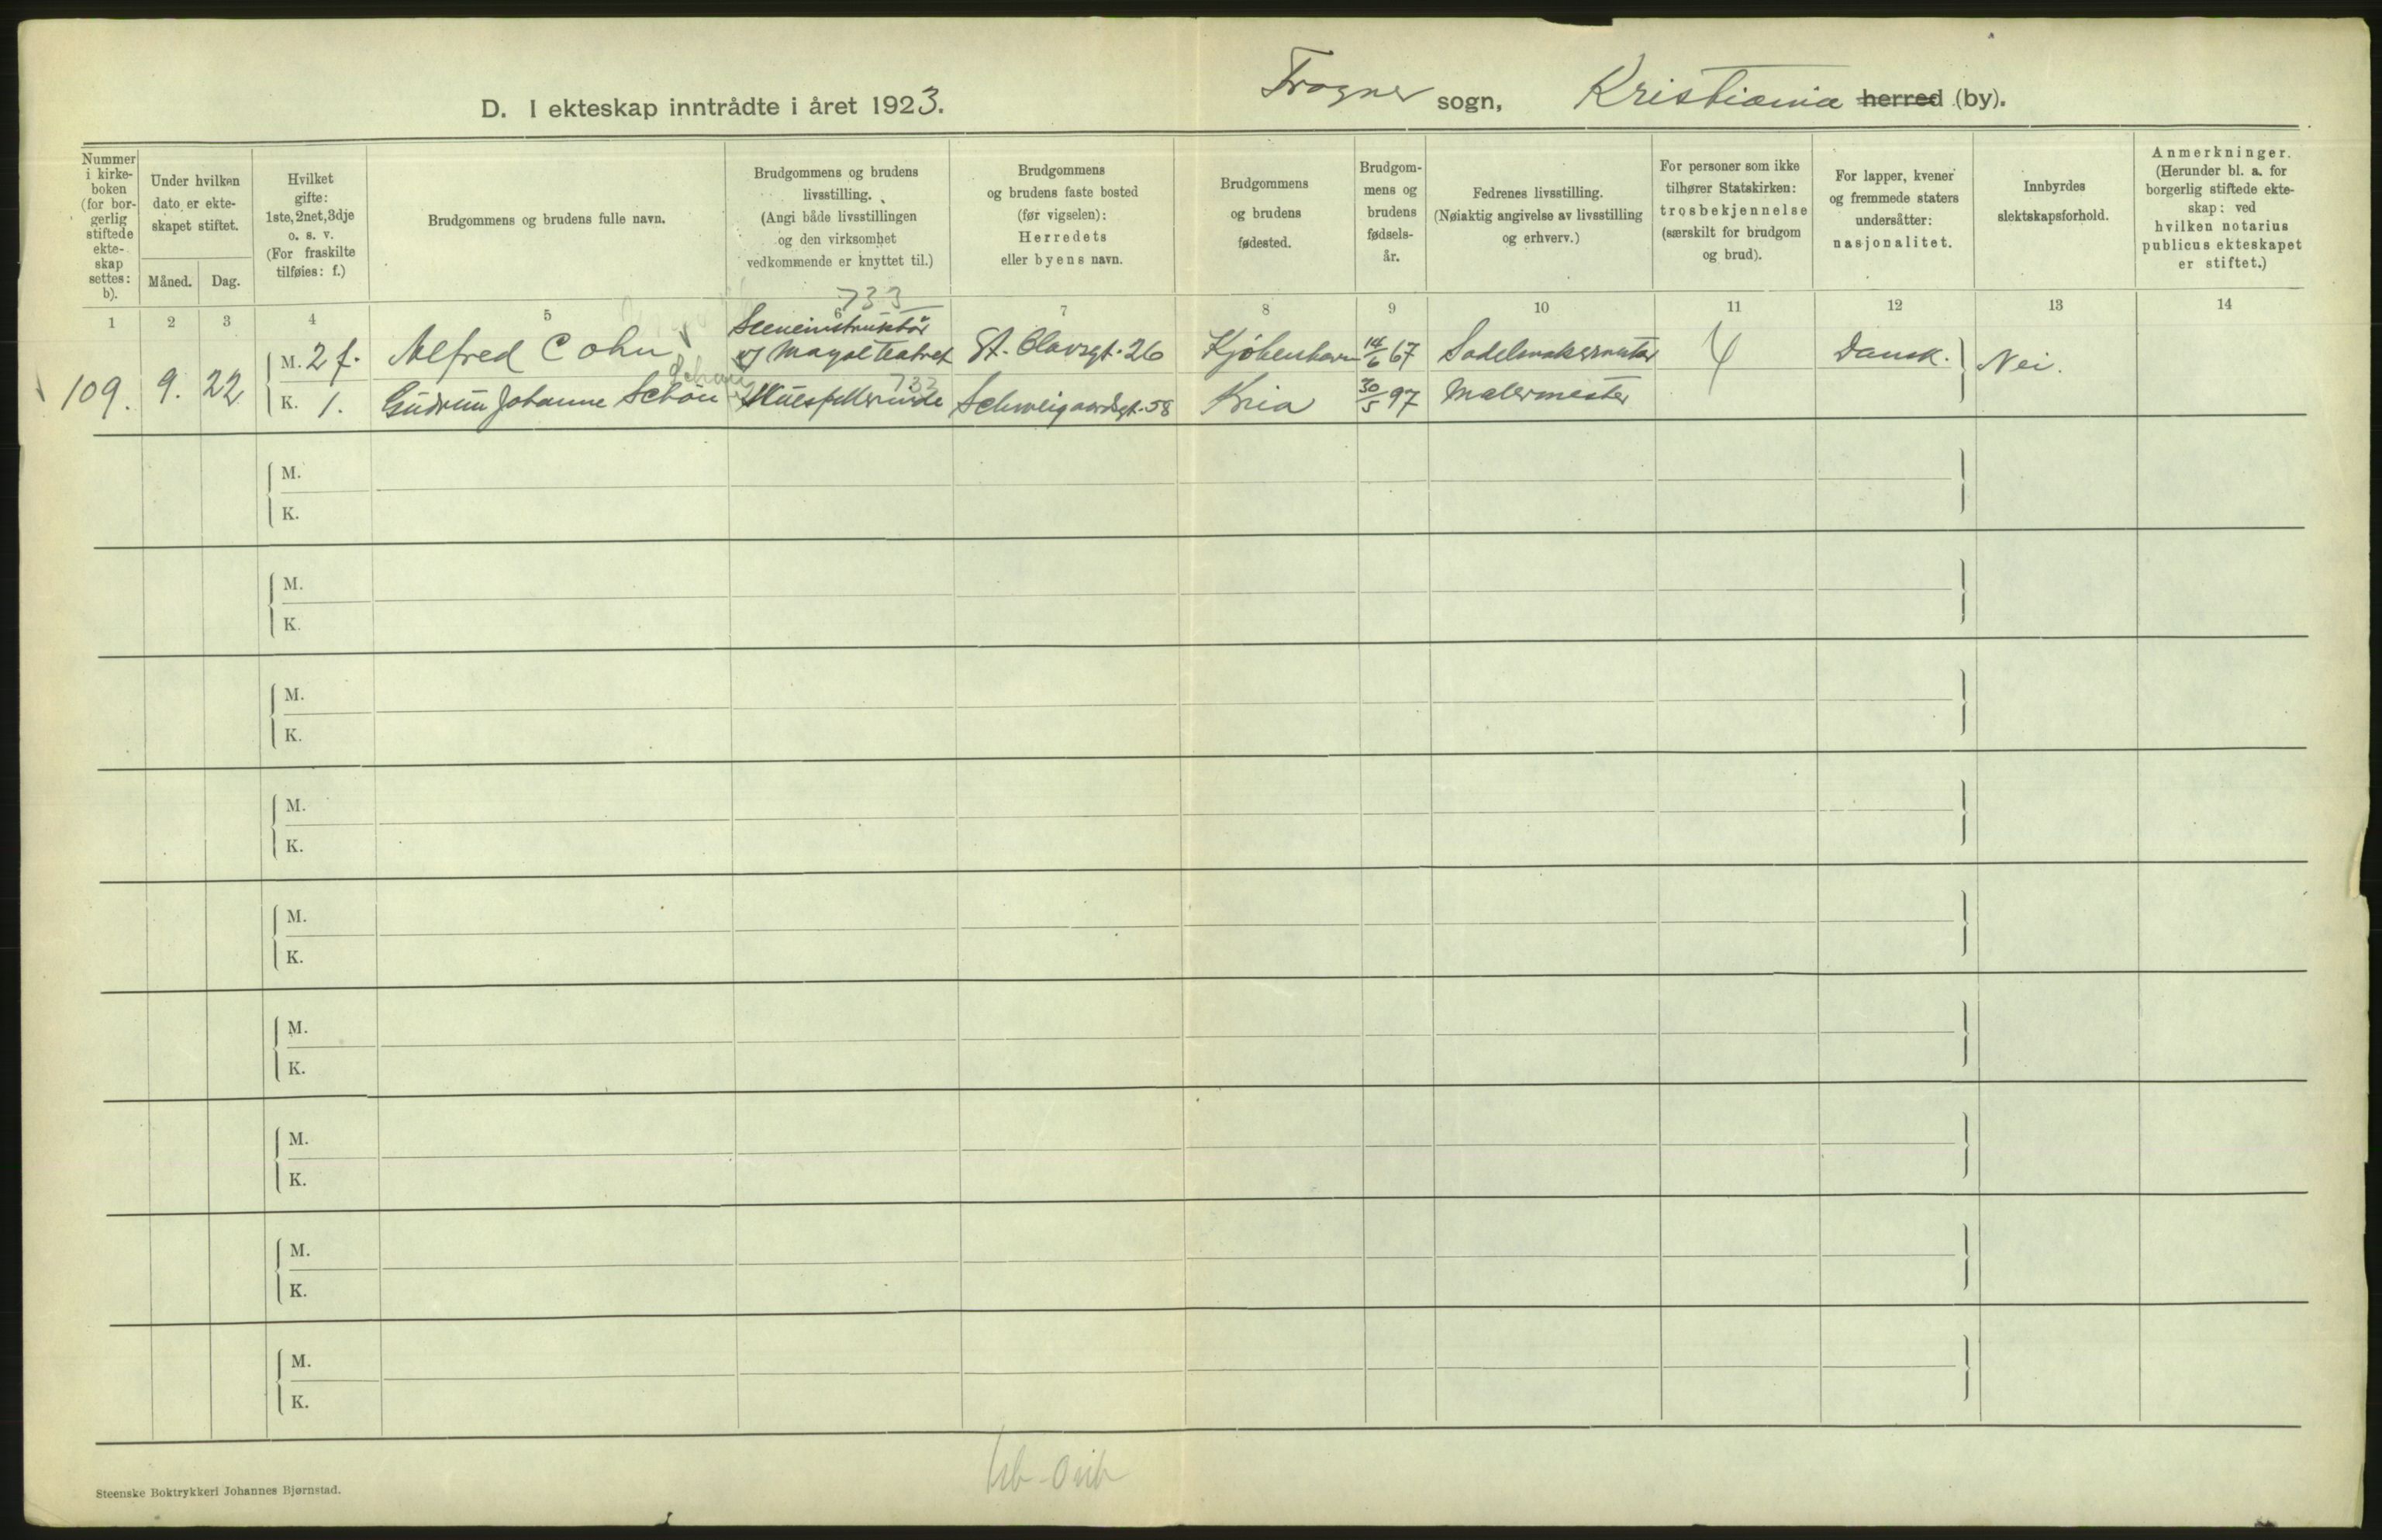 D. I ekteskap inntrådte i året 1923.
Frogner sogn, Kristiania herred (by).
Nummer i kirke-boken (for bor-gerlig stiftede ekte-skap settes: b).
Under hvilken dato er ekte-skapet stiftet.
Måned. Dag.
Hvilket gifte: 1ste, 2net, 3dje o. s. v. (For fraskilte tilføies: f.)
Brudgommens og brudens fulle navn.
Brudgommens og brudens livsstilling. (Angi både livsstillingen og den virksomhet vedkommende er knyttet til.)
Brudgommens og brudens faste bosted (før vigselen): Herredets eller byens navn.
Brudgommens og brudens fødested.
Brudgom-mens og brudens fødsels-år.
Fedrenes livsstilling. (Nøiaktig angivelse av livsstilling og erhverv.)
For personer som ikke tilhører Statskirken: trosbekjennelse (særskilt for brudgom og brud).
For lapper, kvener og fremmede staters undersåtter: nasjonalitet.
Innbyrdes slektskapsforhold.
Anmerkninger. (Herunder bl. a. for borgerlig stiftede ekte-skap: ved hvilken notarius publicus ekteskapet er stiftet.)
1 2 3 4 5 6 7 8 9 10 11 12 13 14
733
109. 9. 22
M. 2 f. Alfred Cohn Sceneinstruktör v/ Mayol teatret St. Olavsgt. 26 Kjöbenhavn 14/6 67 Sadelmakermester Dansk. Nei.
Schou 733
K. 1. Gudrun Johanne Schou Skuespillerinde Schweigaardsgt. 58 Kria 30/5 97 Malermester
M.
K.
M.
K.
M.
K.
M.
K.
M.
K.
M.
K.
M.
K.
M.
K.
M.
K.
Steenske Boktrykkeri Johannes Bjørnstad.